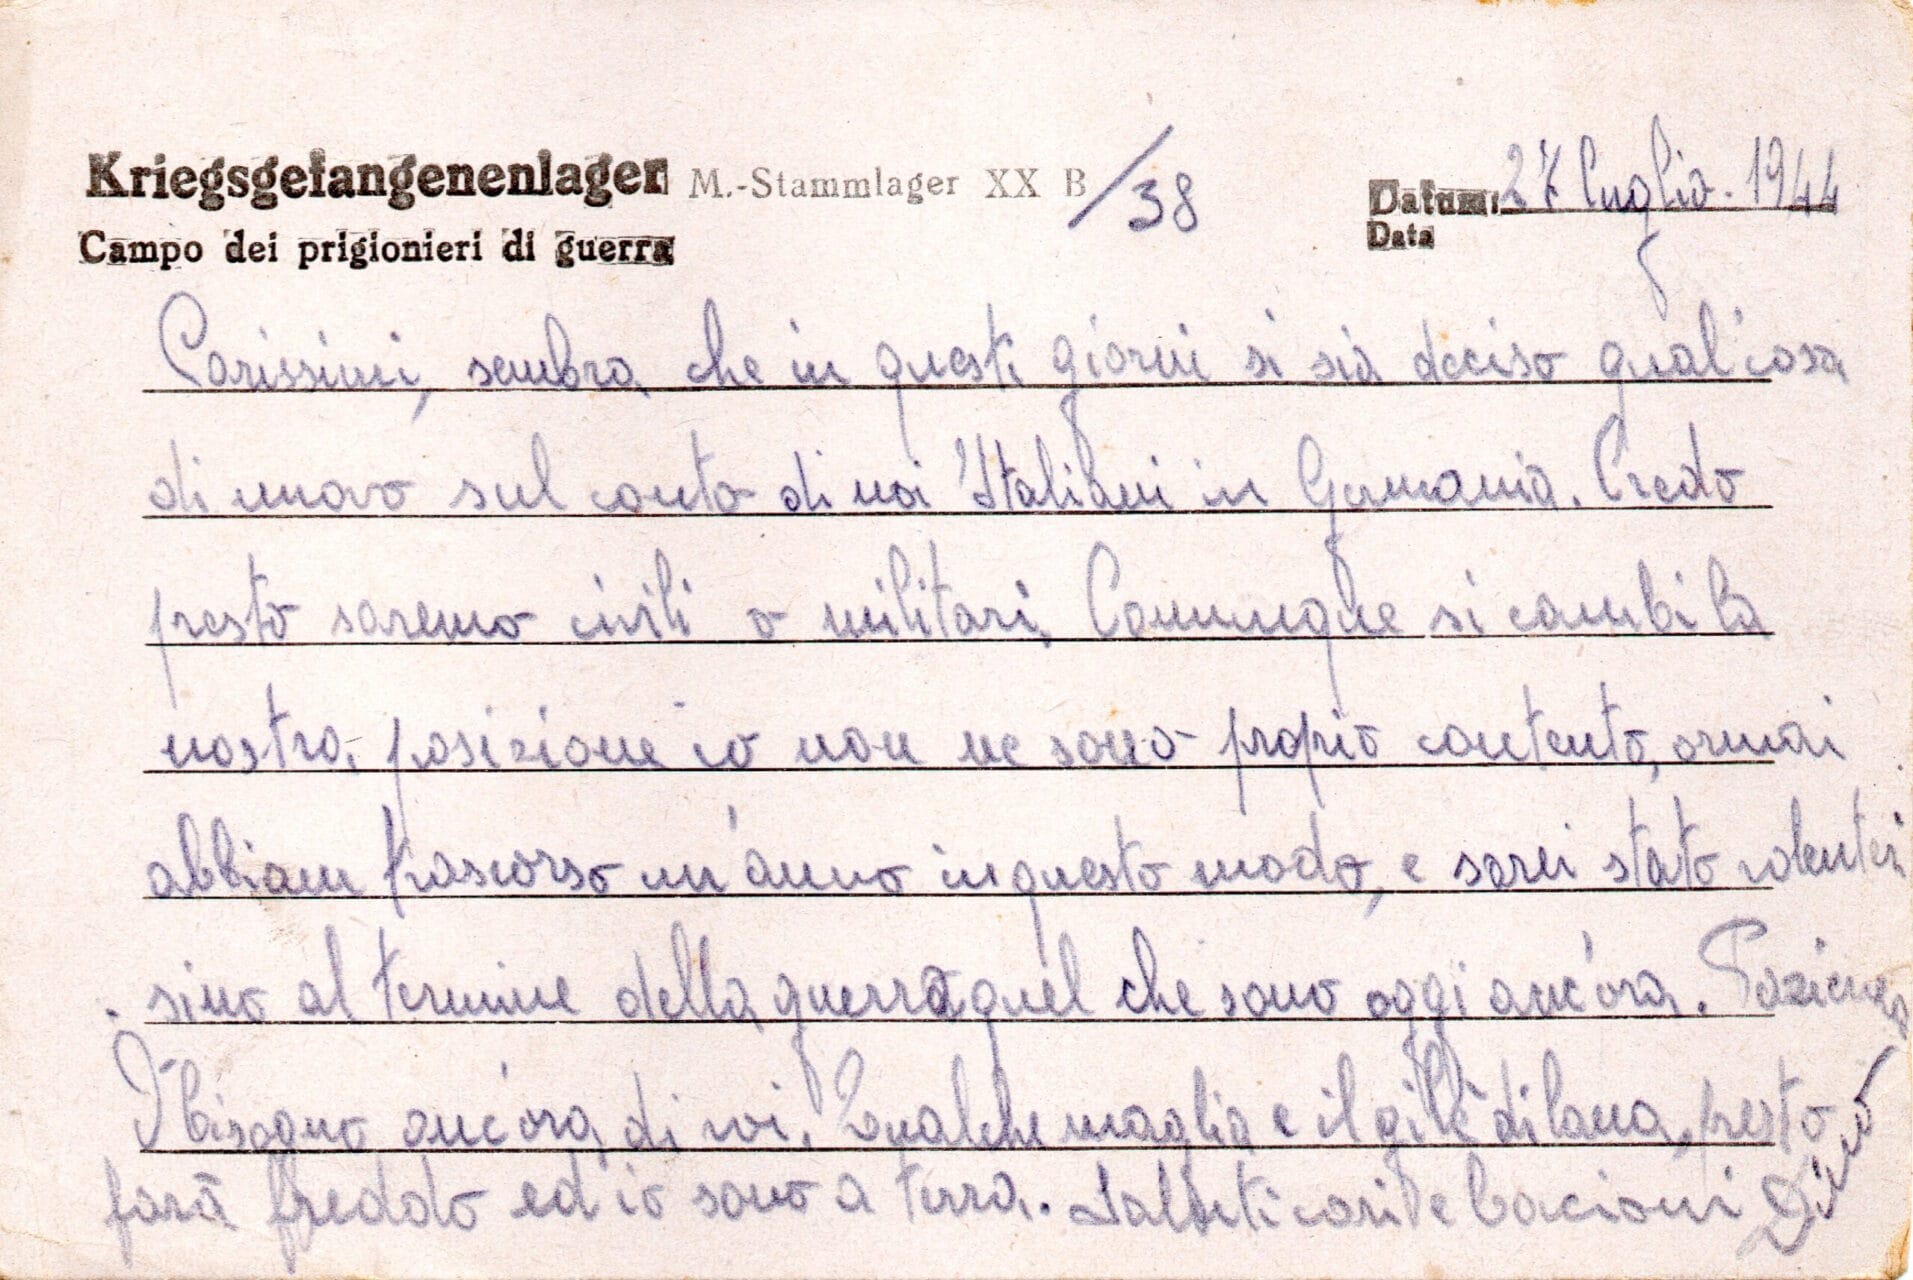 Kriegsgefangenenlager M.-Stammlager XX B/38 Datum: 27 luglio. 1944
Campo dei prigionieri di guerra Data
Carissimi, sembra che in questi giorni si sia deciso qual'cosa
di nuovo sul conto di noi Italiani in Germania. Credo
presto saremo civili o militari. Comunque si cambi la
nostra posizione io non ne sono propio contento, ormai
abbiam trascorso un'anno in questo modo, e sarei stato volentieri
sino al termine della guerra quel che sono oggi anc'ora. Pazienza
bisogno anc'ora di voi. Qualche maglia e il gilè di lana, presto
farà freddo ed io sono a terra. Saluti cari e bacioni Dino